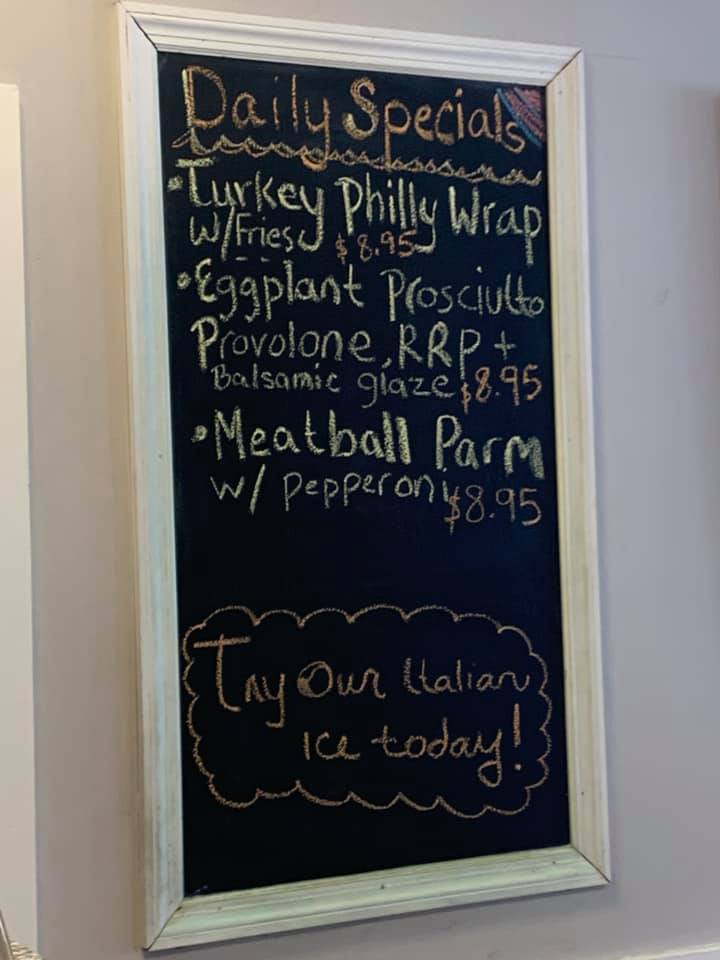 Daily Specials
• Turkey Philly Wrap
w/Fries $8.95
• Eggplant Prosciutto
Provolone, RRP +
Balsamic glaze $8.95
• Meatball Parm
w/ pepperoni $8.95
Try Our Italian
Ice today!